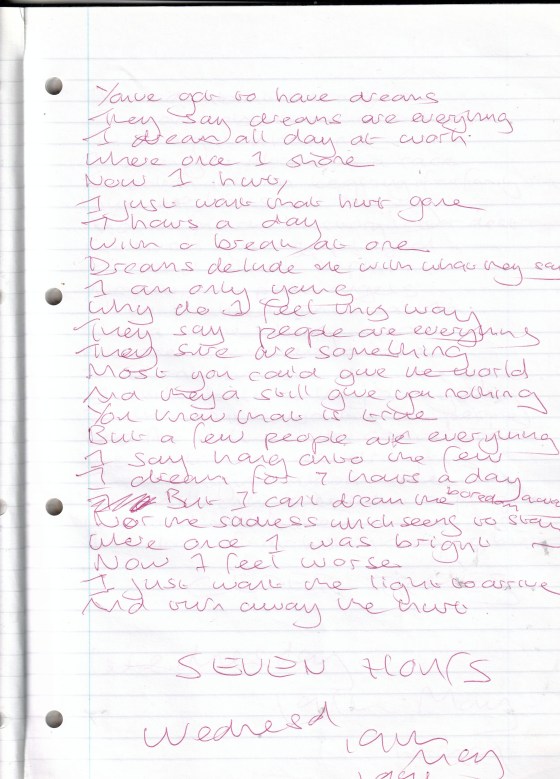 You've got to have dreams
They say dreams are everything
I dream all day at work
Where once I shone
Now I hurt,
I just want that hurt gone
7 hours a day
With a break at one
Dreams delude me with what they say
I am only young
Why do I feel this way
They say people are everything
They sure are something
Most you could give the world
And they'd still give you nothing
You know that is true
But a few people are everything
I say hang onto the few
I dream for 7 hours a day
But I can't dream the boredom away
Nor the sadness which seems to stay
Where once I was bright
Now I feel worse
I just want the light to arrive
And turn away the hurt
SEVEN HOURS
Wednesd
May